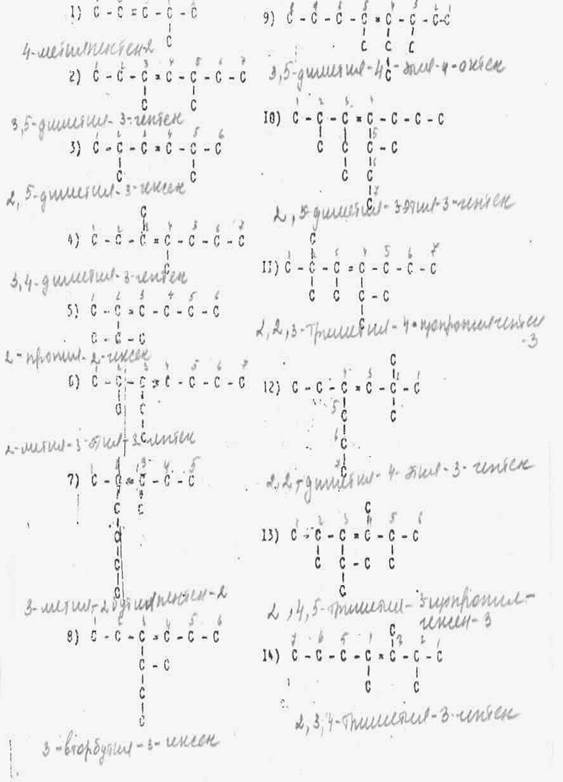 1) C - C = C - C - C
C
4-метилпентен-2
2) C - C - C = C - C - C - C
C C
3,5-диметил-3-гептен
3) C - C - C = C - C - C
C C
2,5-диметил-3-гексен
C
4) C - C - C = C - C - C - C
C
3,4-диметил-3-гептен
5) C - C = C - C - C - C
C - C - C
2-пропил-2-гексен
6) C - C - C = C - C - C - C
C C
C
2-метил-3-этил-3-гептен
7) C - C = C - C - C
C C
C
C
C
3-метил-2бутилпентен-2
8) C - C - C = C - C - C
C - C
C
C
3-вторбутил-3-гексен
9) C - C - C - C = C - C - C - C
C C C
C
3,5-диметил-4-этил-4-октен
10) C - C - C = C - C - C - C
C C C - C
C C
C
2,5-диметил-3-этил-3-гептен
C
11) C - C - C = C - C - C - C
C C C - C
C
2,2,3-триметил-4-изопропилгептен
-3
C
12) C - C - C = C - C - C
C C
C
C
2,2-диметил-4-этил-3-гептен
C
13) C - C - C = C - C - C
C C - C C
C
2,4,5-триметил-3изопропил-
гексен-3
C
14) C - C - C - C = C - C - C
C C
2,3,4-триметил-3-гептен